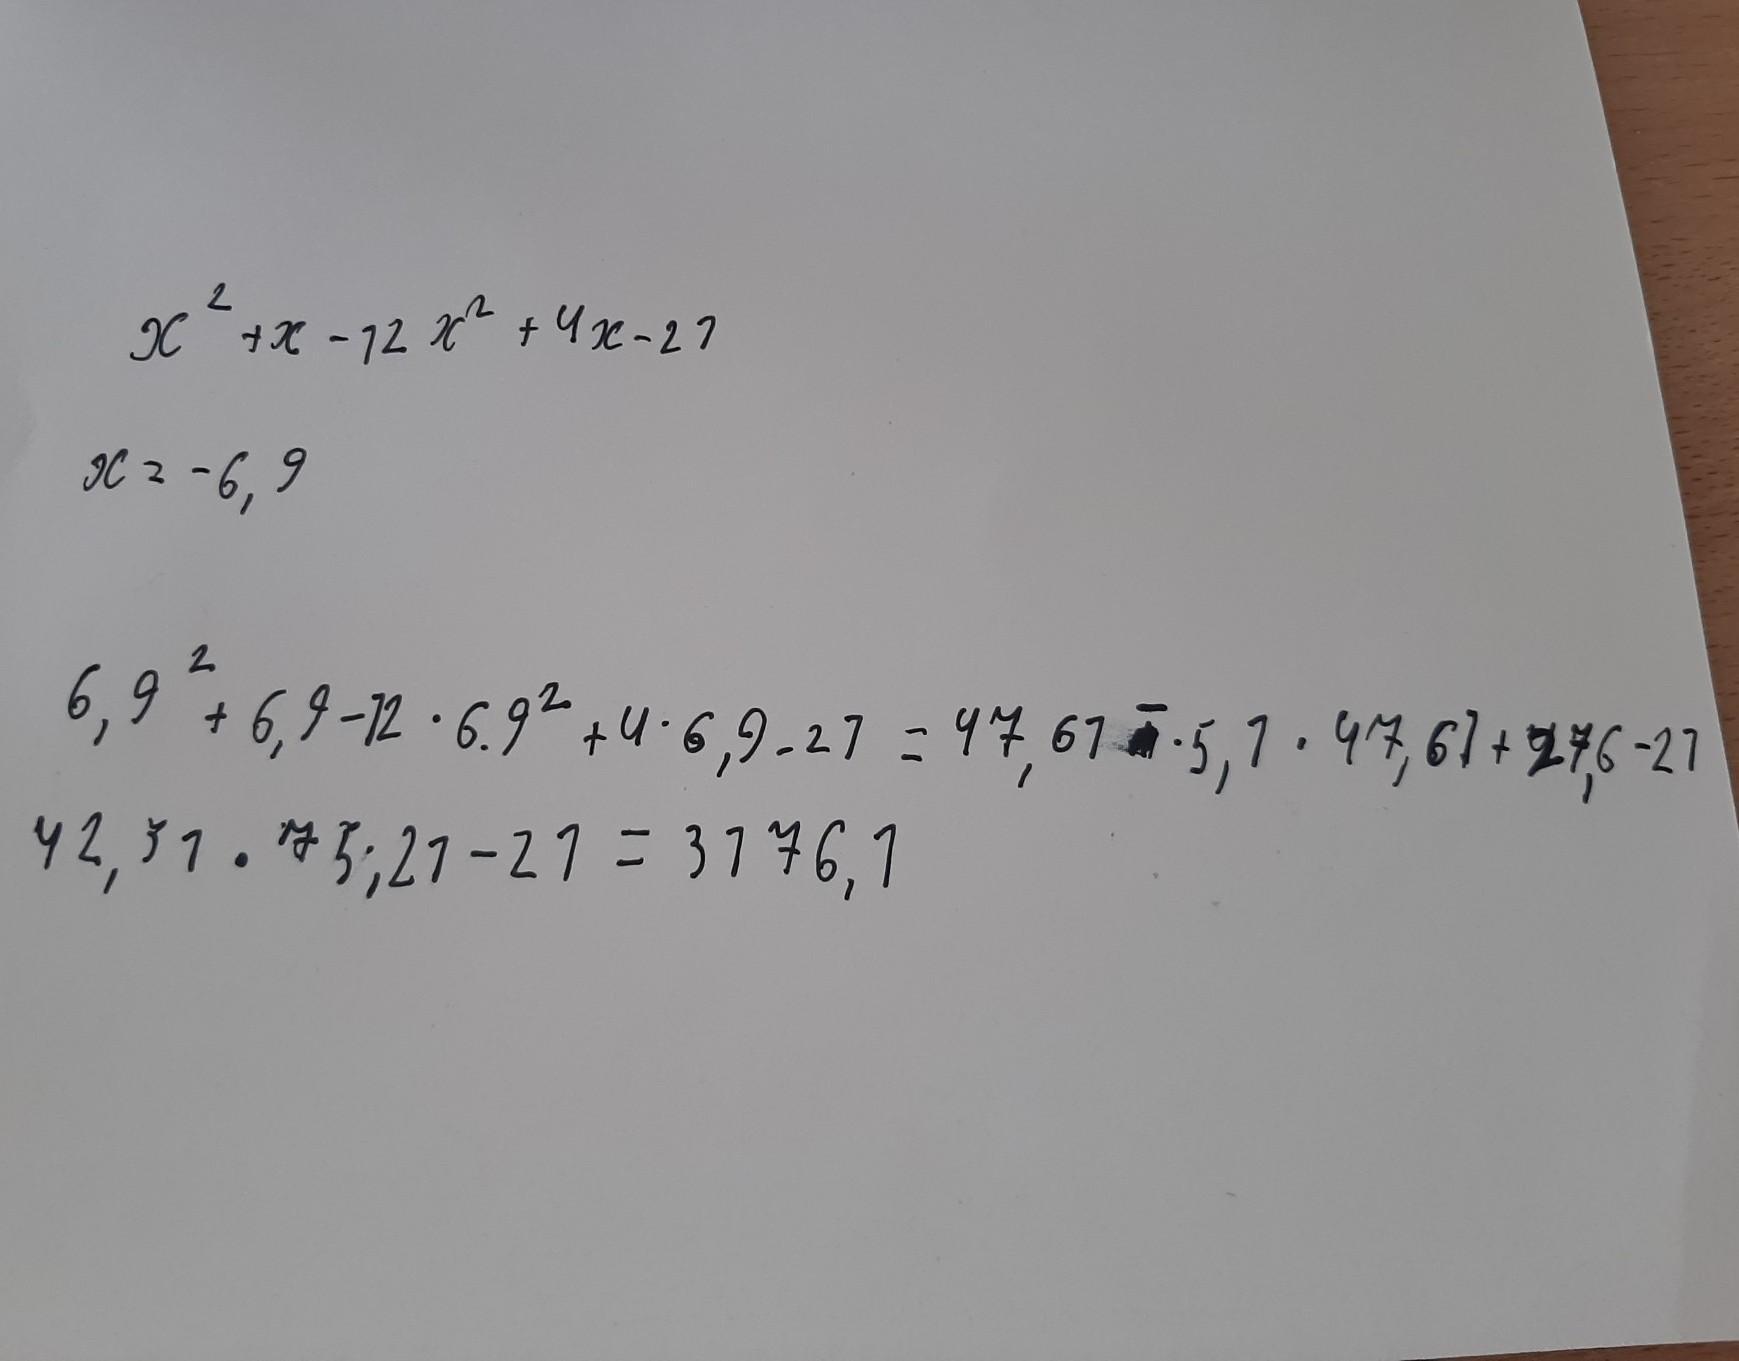 x² + x - 12 x² + 4x - 21
x = -6,9
6,9² + 6,9 - 12 · 6.9² + 4 · 6,9 - 21 = 47,61 - · 5,1 · 47,61 + 27,6 - 21
42,51 · 75,21 - 21 = 3176,1